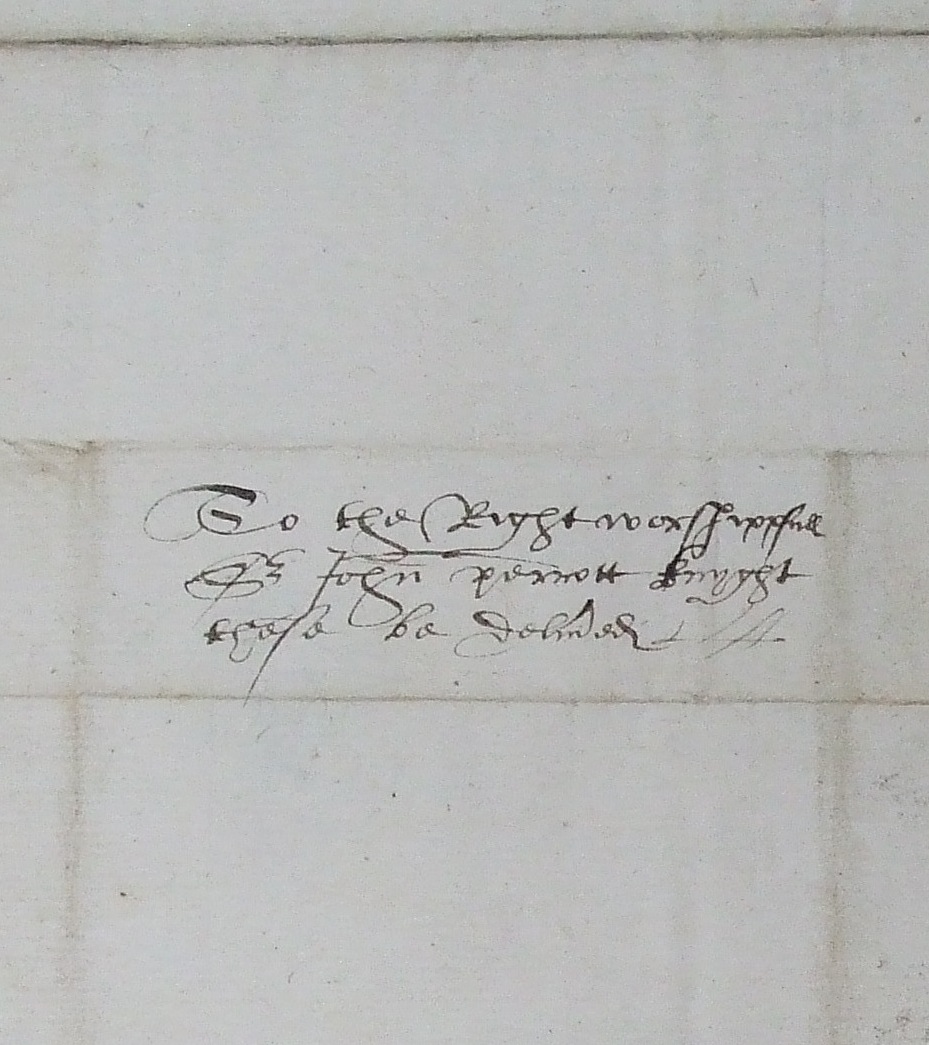 To the Right worshipfull
Sr John perrott knyght
these be deliued